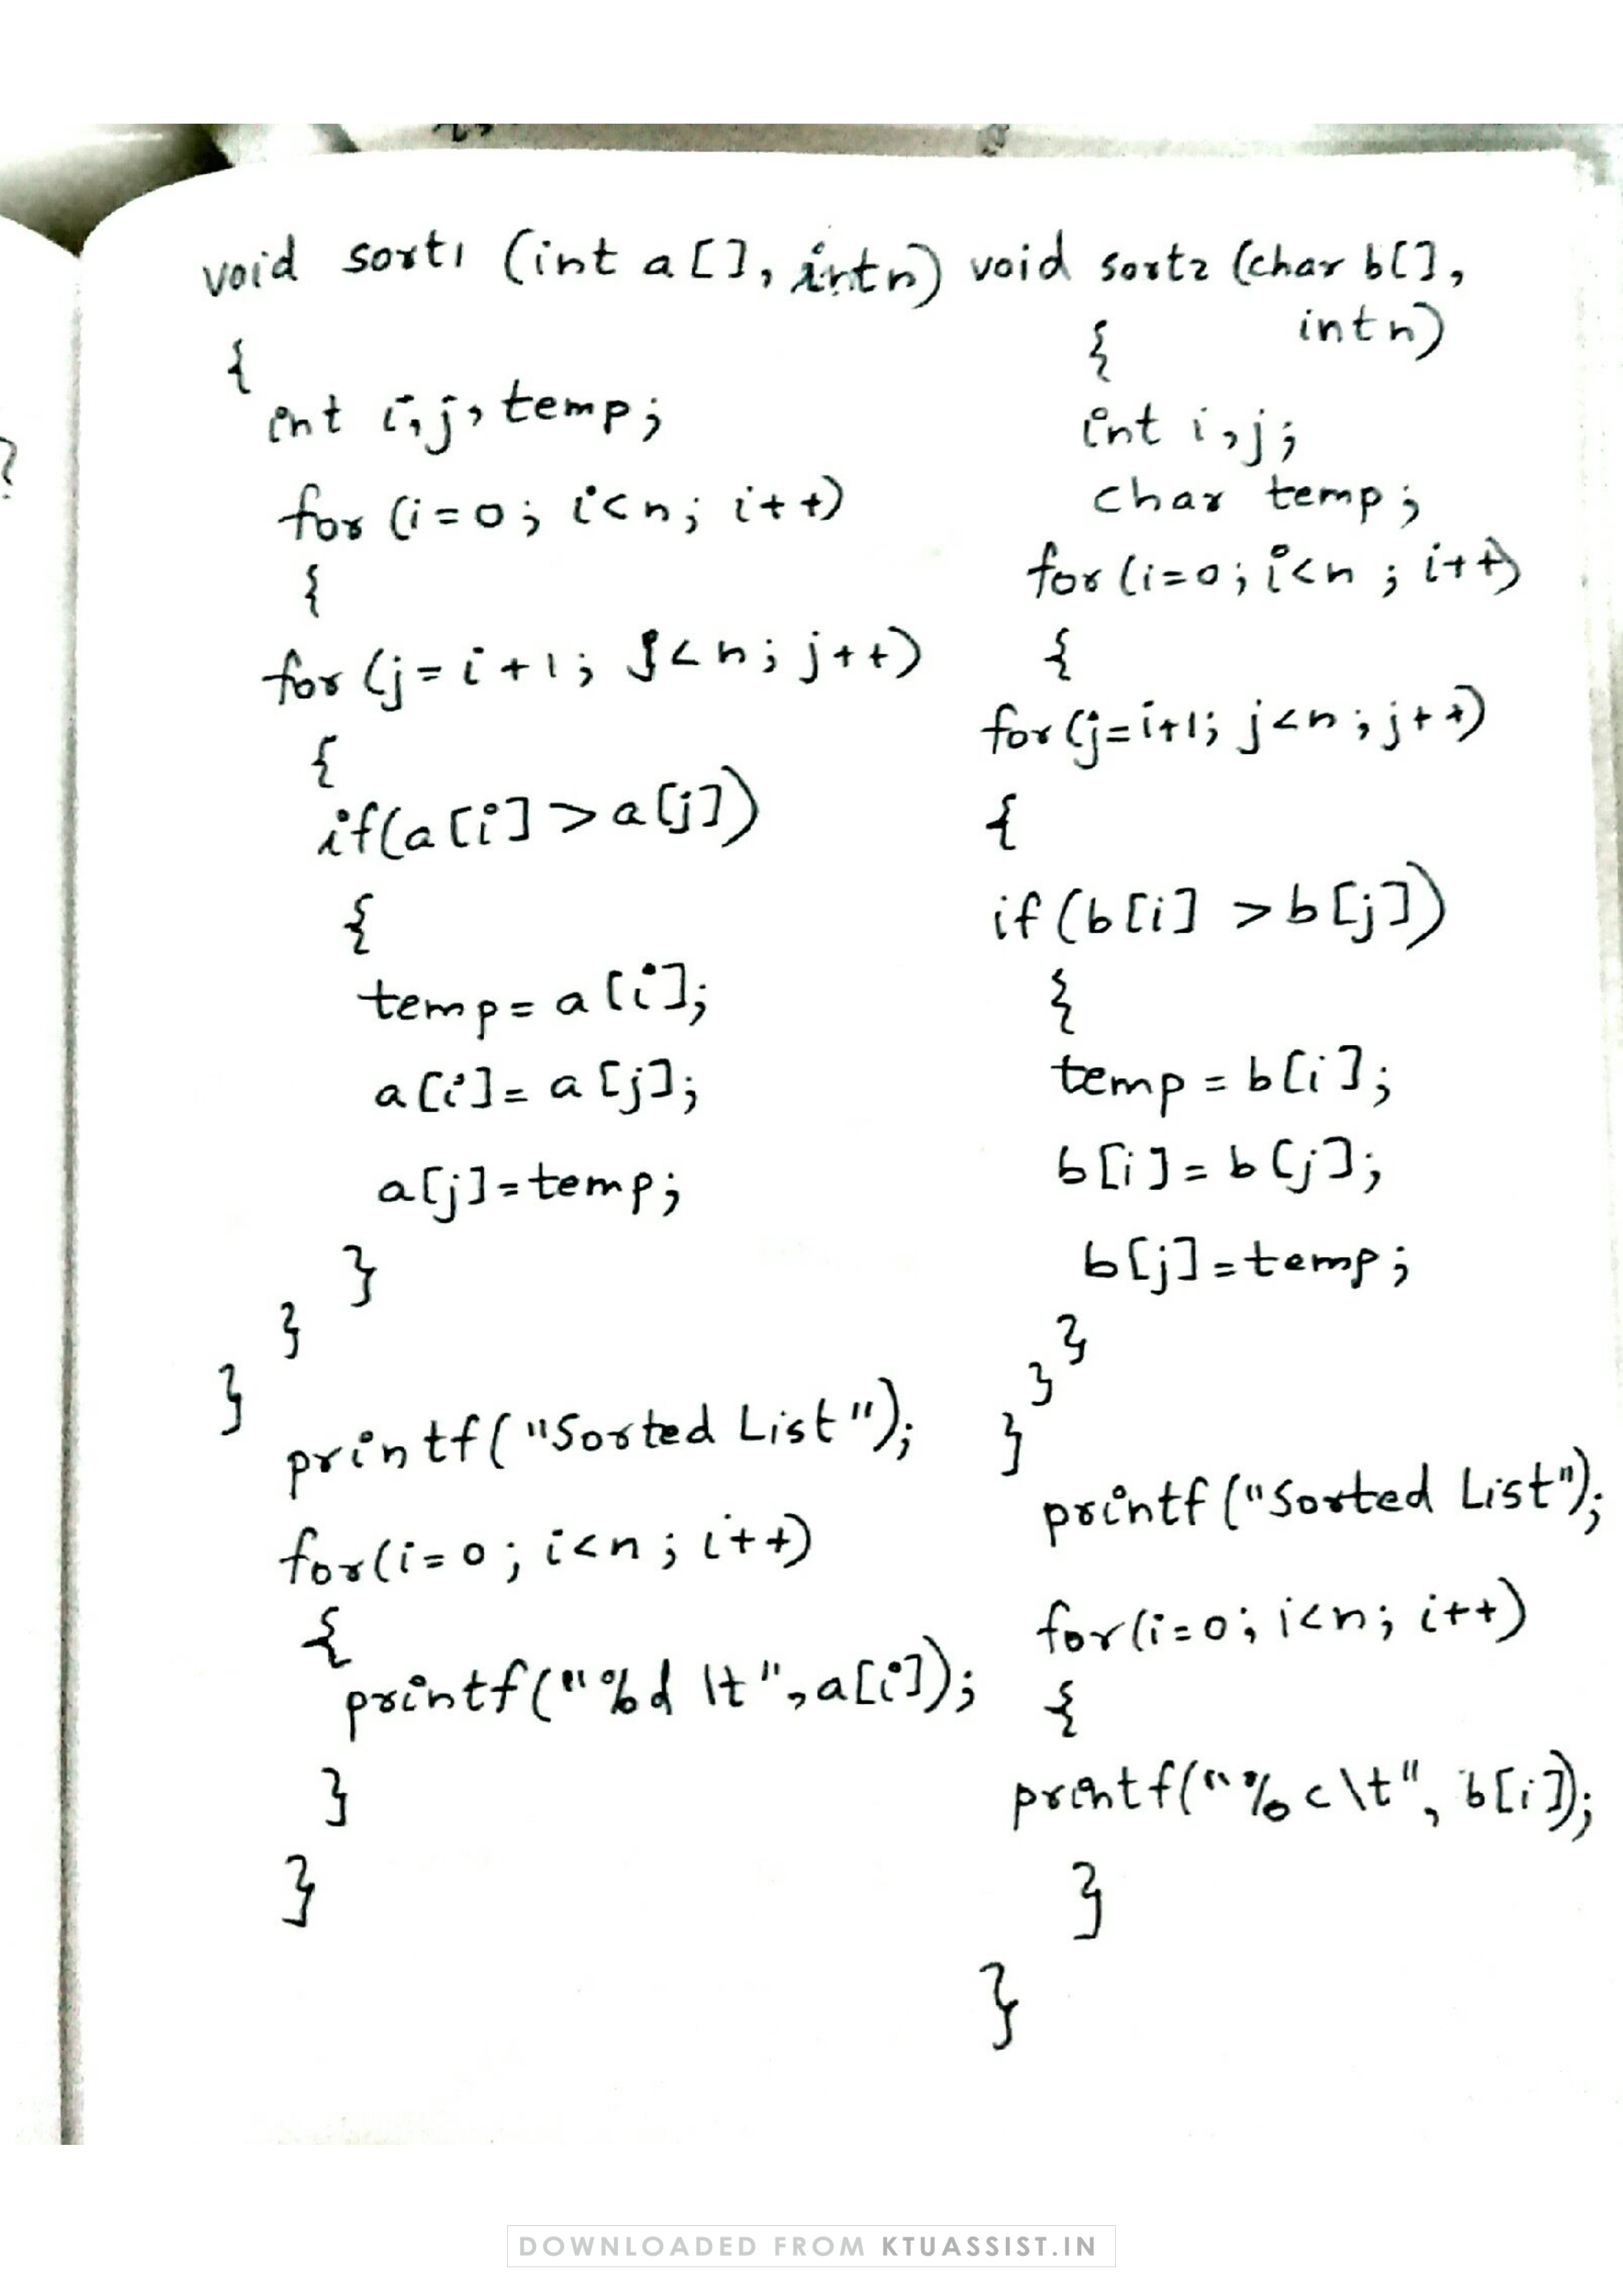 void sort1 (int a[], int n)
{
int i, j, temp;
for (i=0; i<n; i++)
{
for (j=i+1; j<n; j++)
{
if(a[i]>a[j])
{
temp= a[i];
a[i]= a[j];
a[j]=temp;
}
}
}
printf("Sorted List");
for(i=0; i<n; i++)
{
printf("%d \t", a[i]);
}
}
void sort2 (char b[],
int n)
{
int i, j;
char temp;
for (i=0; i<n; i++)
{
for(j=i+1; j<n; j++)
{
if (b[i] >b[j])
{
temp = b[i];
b[i]= b[j];
b[j]=temp;
}
}
}
printf("Sorted List");
for(i=0; i<n; i++)
{
printf("%c\t", b[i]);
}
}
?
DOWNLOADED FROM KTUASSIST.IN